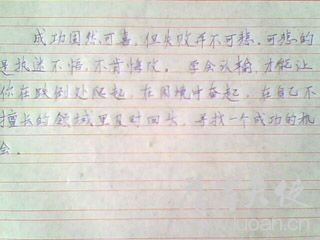 成功固然可喜,但失败并不可悲,可悲的
是执迷不悟,不肯悔改。学会认输,才能让
你在跌倒处爬起,在困境中奋起,在自己不
擅长的领域里及时回头,寻找一个成功的机
会。
luoah.cn